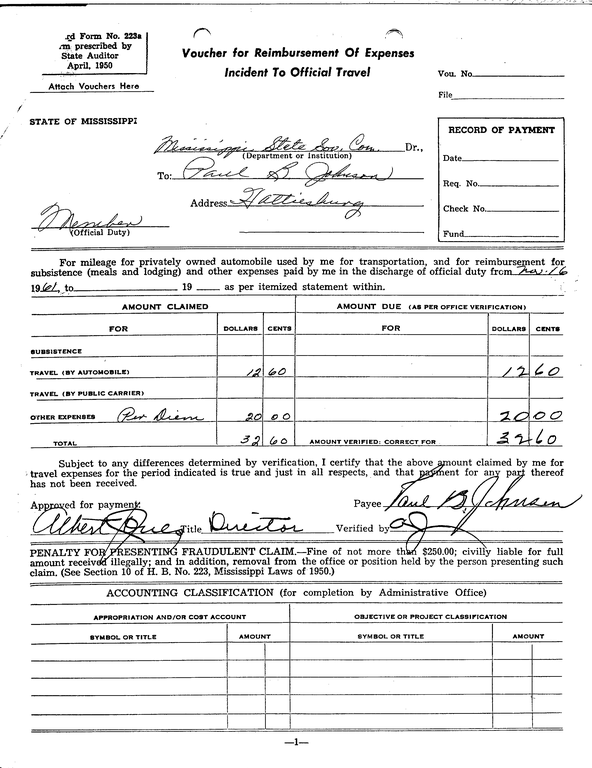 rd Form No. 223a
m prescribed by
State Auditor
April, 1950
Attach Vouchers Here
Voucher for Reimbursement Of Expenses
Incident To Official Travel
Vou. No.
File
STATE OF MISSISSIPPI
Mississippi State Sov. Com. Dr.,
(Department or Institution)
To: Paul B. Johnson
Address Hattiesburg
Member
(Official Duty)
RECORD OF PAYMENT
Date
Req. No.
Check No.
Fund
For mileage for privately owned automobile used by me for transportation, and for reimbursement for
subsistence (meals and lodging) and other expenses paid by me in the discharge of official duty from Nov. 16
1961, to 19 as per itemized statement within.
AMOUNT CLAIMED AMOUNT DUE (AS PER OFFICE VERIFICATION)
FOR DOLLARS CENTS FOR DOLLARS CENTS
SUBSISTENCE
TRAVEL (BY AUTOMOBILE) 12 60 12 60
TRAVEL (BY PUBLIC CARRIER)
OTHER EXPENSES Per Diem 20 00 20 00
TOTAL 32 60 AMOUNT VERIFIED: CORRECT FOR 32 60
Subject to any differences determined by verification, I certify that the above amount claimed by me for
travel expenses for the period indicated is true and just in all respects, and that payment for any part thereof
has not been received.
Approved for payment: Payee Paul B. Johnson
Albert Jones Title Director Verified by
PENALTY FOR PRESENTING FRAUDULENT CLAIM.—Fine of not more than $250.00; civilly liable for full
amount received illegally; and in addition, removal from the office or position held by the person presenting such
claim. (See Section 10 of H. B. No. 223, Mississippi Laws of 1950.)
ACCOUNTING CLASSIFICATION (for completion by Administrative Office)
APPROPRIATION AND/OR COST ACCOUNT OBJECTIVE OR PROJECT CLASSIFICATION
SYMBOL OR TITLE AMOUNT SYMBOL OR TITLE AMOUNT
—1—